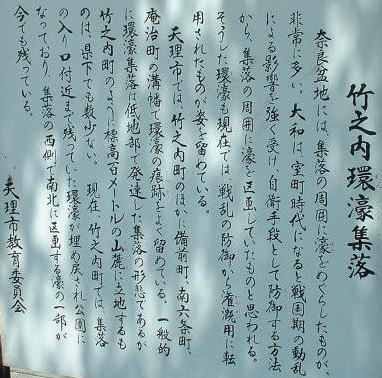 竹之内環濠集落
奈良盆地には、集落の周囲に濠をめぐらしたものが、
非常に多い。大和は、室町時代になると戦国期の動乱
による影響を強く受け、自衛手段として防御する方法
から、集落の周囲に濠を区画していたものと思われる。
そうした環濠も現在では、戦乱の防御から潅漑用に転
用されたものが姿を留めている。
天理市では、竹之内町のほか、備前町、南六条町、
庵治町の溝幡で環濠の痕跡をよく留めている。一般的
に環濠集落は低地部で発達した集落の形態であるが
竹之内町のように標高百メートルの山麓に立地するも
のは、県下でも数少ない。現在、竹之内町では、集落
の入り口付近まで残っていた環濠が埋め戻され公園に
なっており、集落の西側で南北に区画する濠の一部が
今でも残っている。
天理市教育委員会